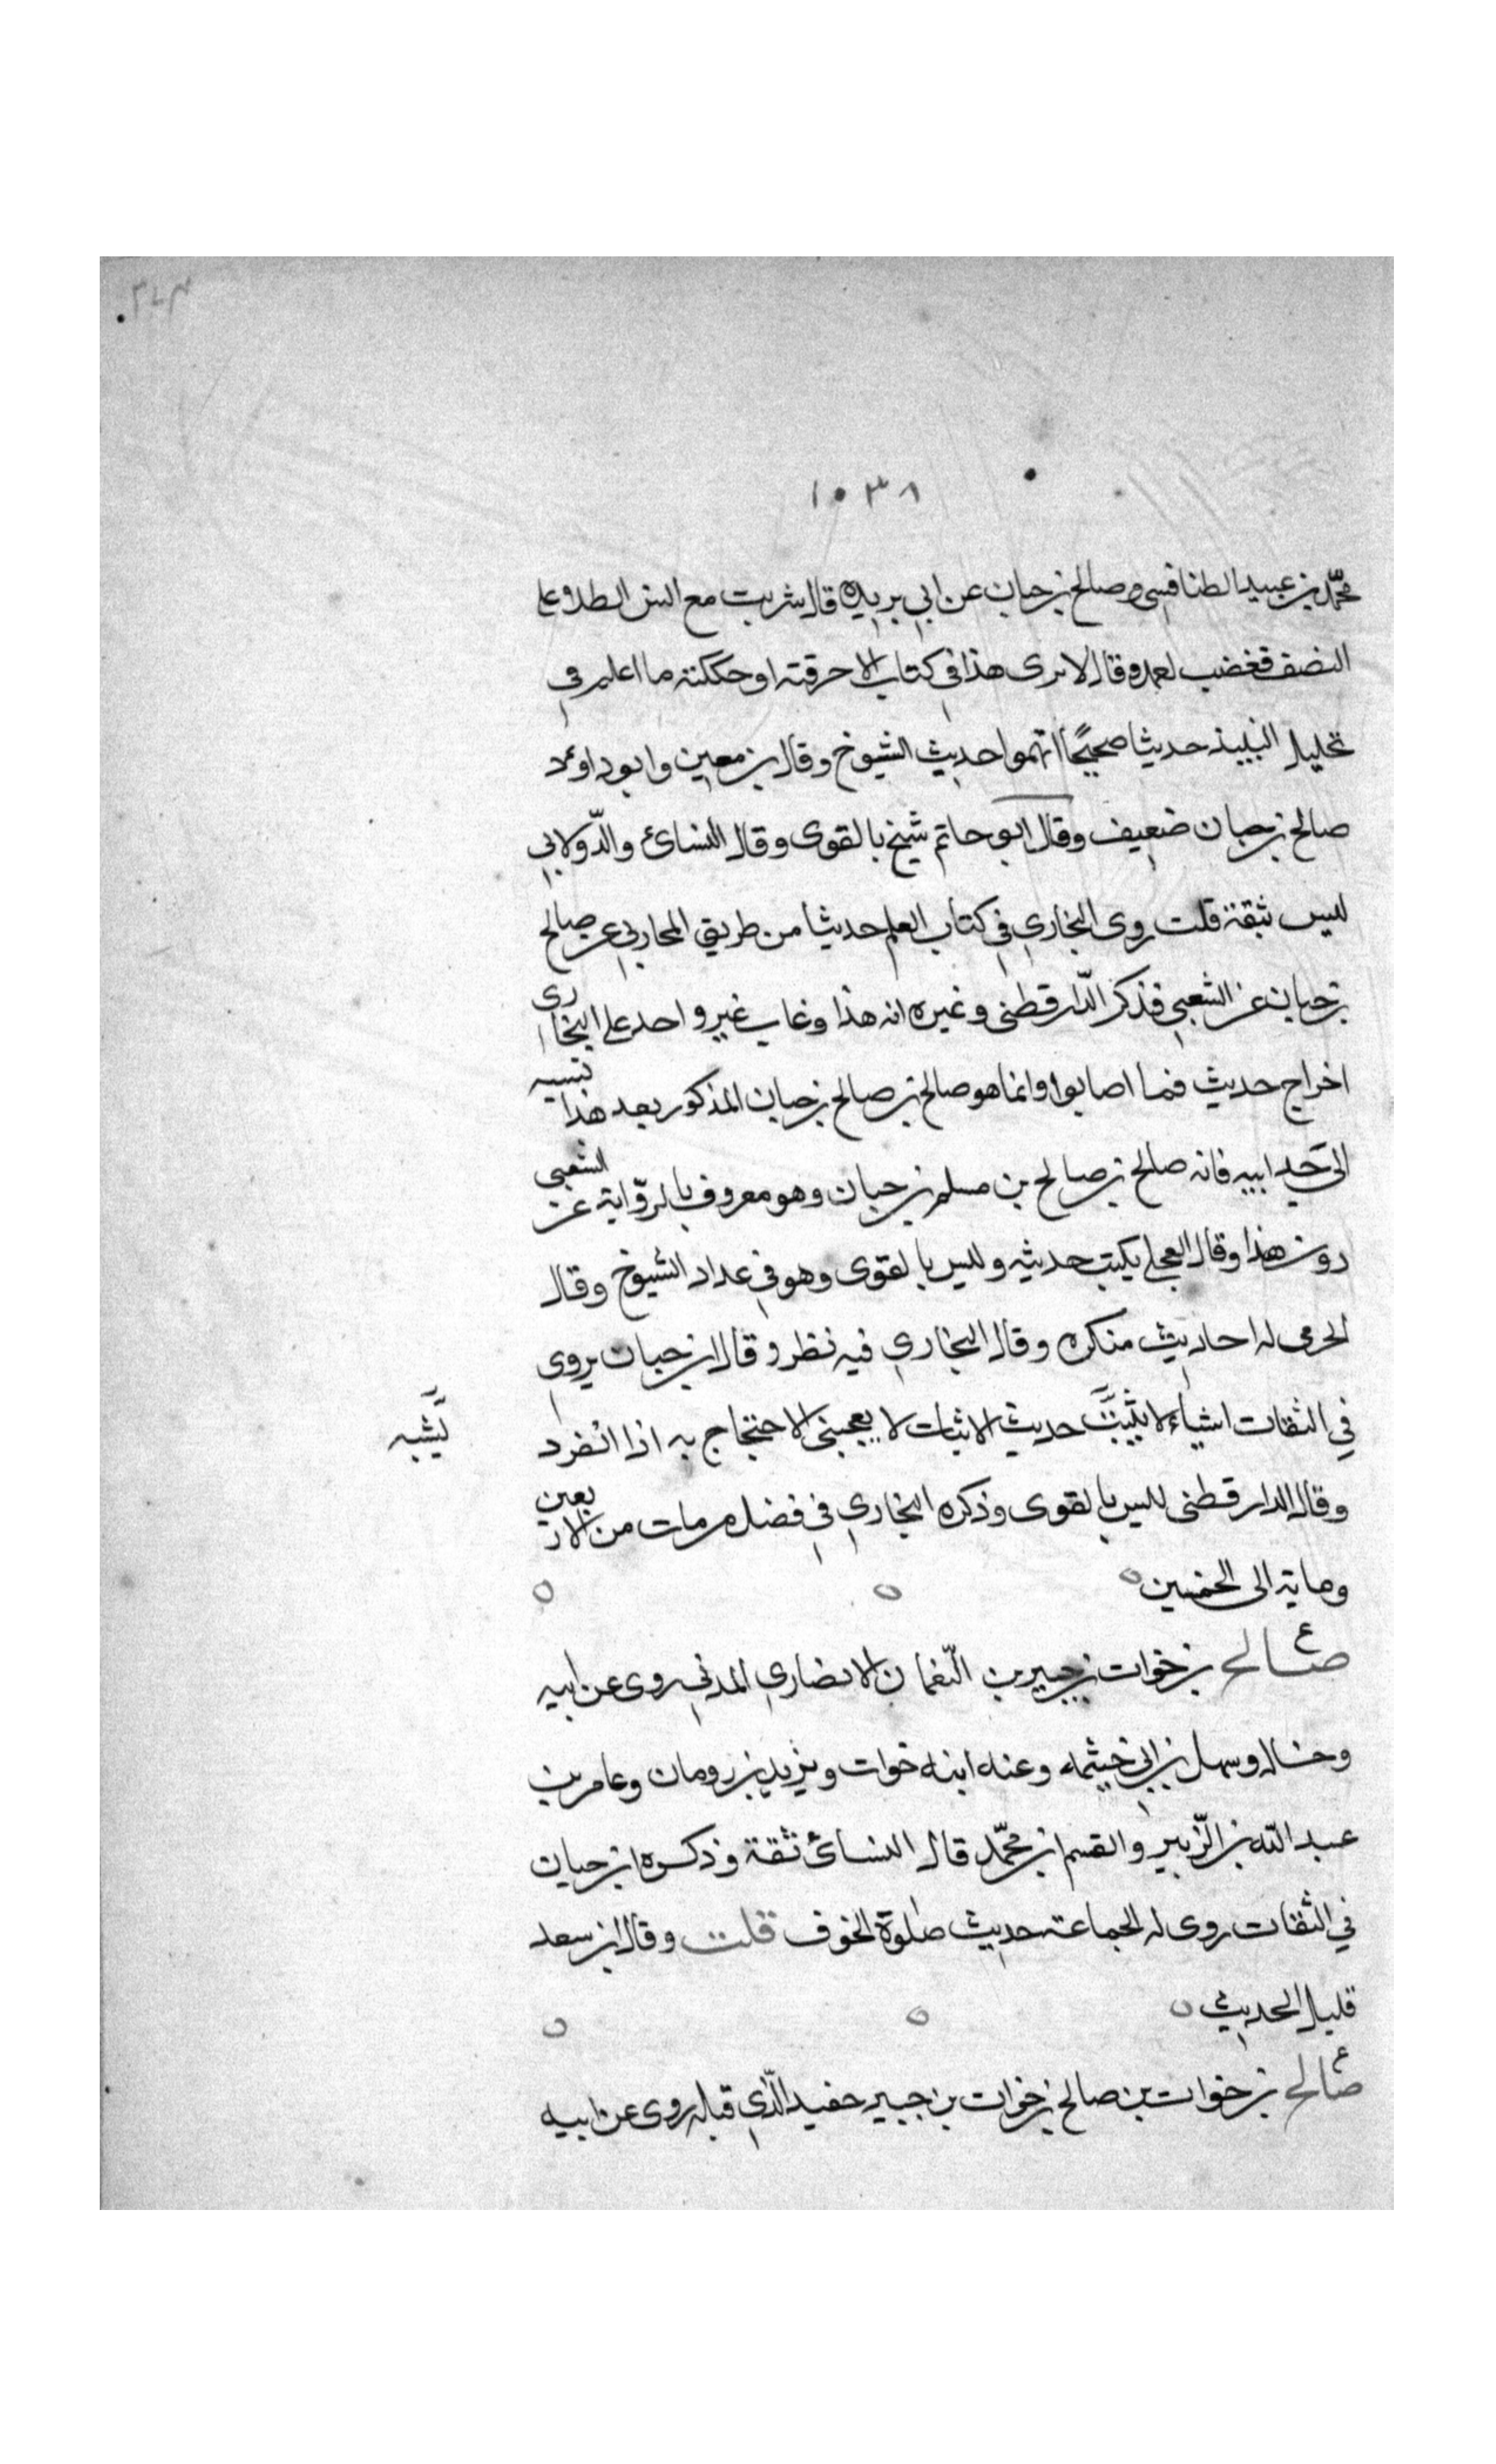 ١٠٣٨
محمّد بن عبيد الطنافسي وصالح بن حبان عن ابي بريده قال شربت مع انس الطلا وعلى
النصف فغضب لعمده وقال لا نرى هذا في كتاب الا حرقته او حككته ما اعلم في
تحليل النبيذ حديثا صحيحًا اتهموا حديث الشيوخ وقال بن معين وابو داود
صالح بن حبان ضعيف وقال ابو حاتم شيخ بالقوى وقال النسائ والدّولابي
ليس ثبقة قلت روى البخاري في كتاب العلم حديثا من طريق المحاربي عن صالح
بن حيان عن الشعبي فذكر الدّارقطنى وغيره انه هذا وغاب غير واحد على البخارى
اخراج حديث فما اصابوا وانما هو صالح بن صالح بن حبان المذكور بعد هذا نسبه
الى جَد ابيه فانه صالح بن صالح بن مسلم بن حبان وهو معروف بالروّاية عن الشعبي
دون هذا وقال العجلي يكتب حديثه وليس بالقوى وهو في عداد الشيوخ وقال
الحربى له احاديث منكره وقال البخاري فيه نظر وقال ابن حبان يروى
في الثقات اشياء لا يثبت حديث الاثبات لا يعجبنى الاحتجاج به اذا انفرد
يشبه
وقال الدارقطنى ليس بالقوى وذكره البخاري في فضل من مات من الاربعين
وماية الى الخمسين
صالح بن خوات بن جبير بن النّعمان الانصاري المدني روى عن ابيه
وخاله وسهل بن ابي خيثمه وعنه ابنه خوات ويزيد بن رومان وعامر بن
عبد الله بن الزّبير والقسم ابن محمّد قال النسائ ثقة وذكره ابن حيان
في الثقات روى له الجماعة حديث صلوة الخوف قلت وقال ابن سعد
قليل الحديث
صالح بن خوات بن صالح بن خوات بن جبير حفيد الذّي قبله روى عن ابيه